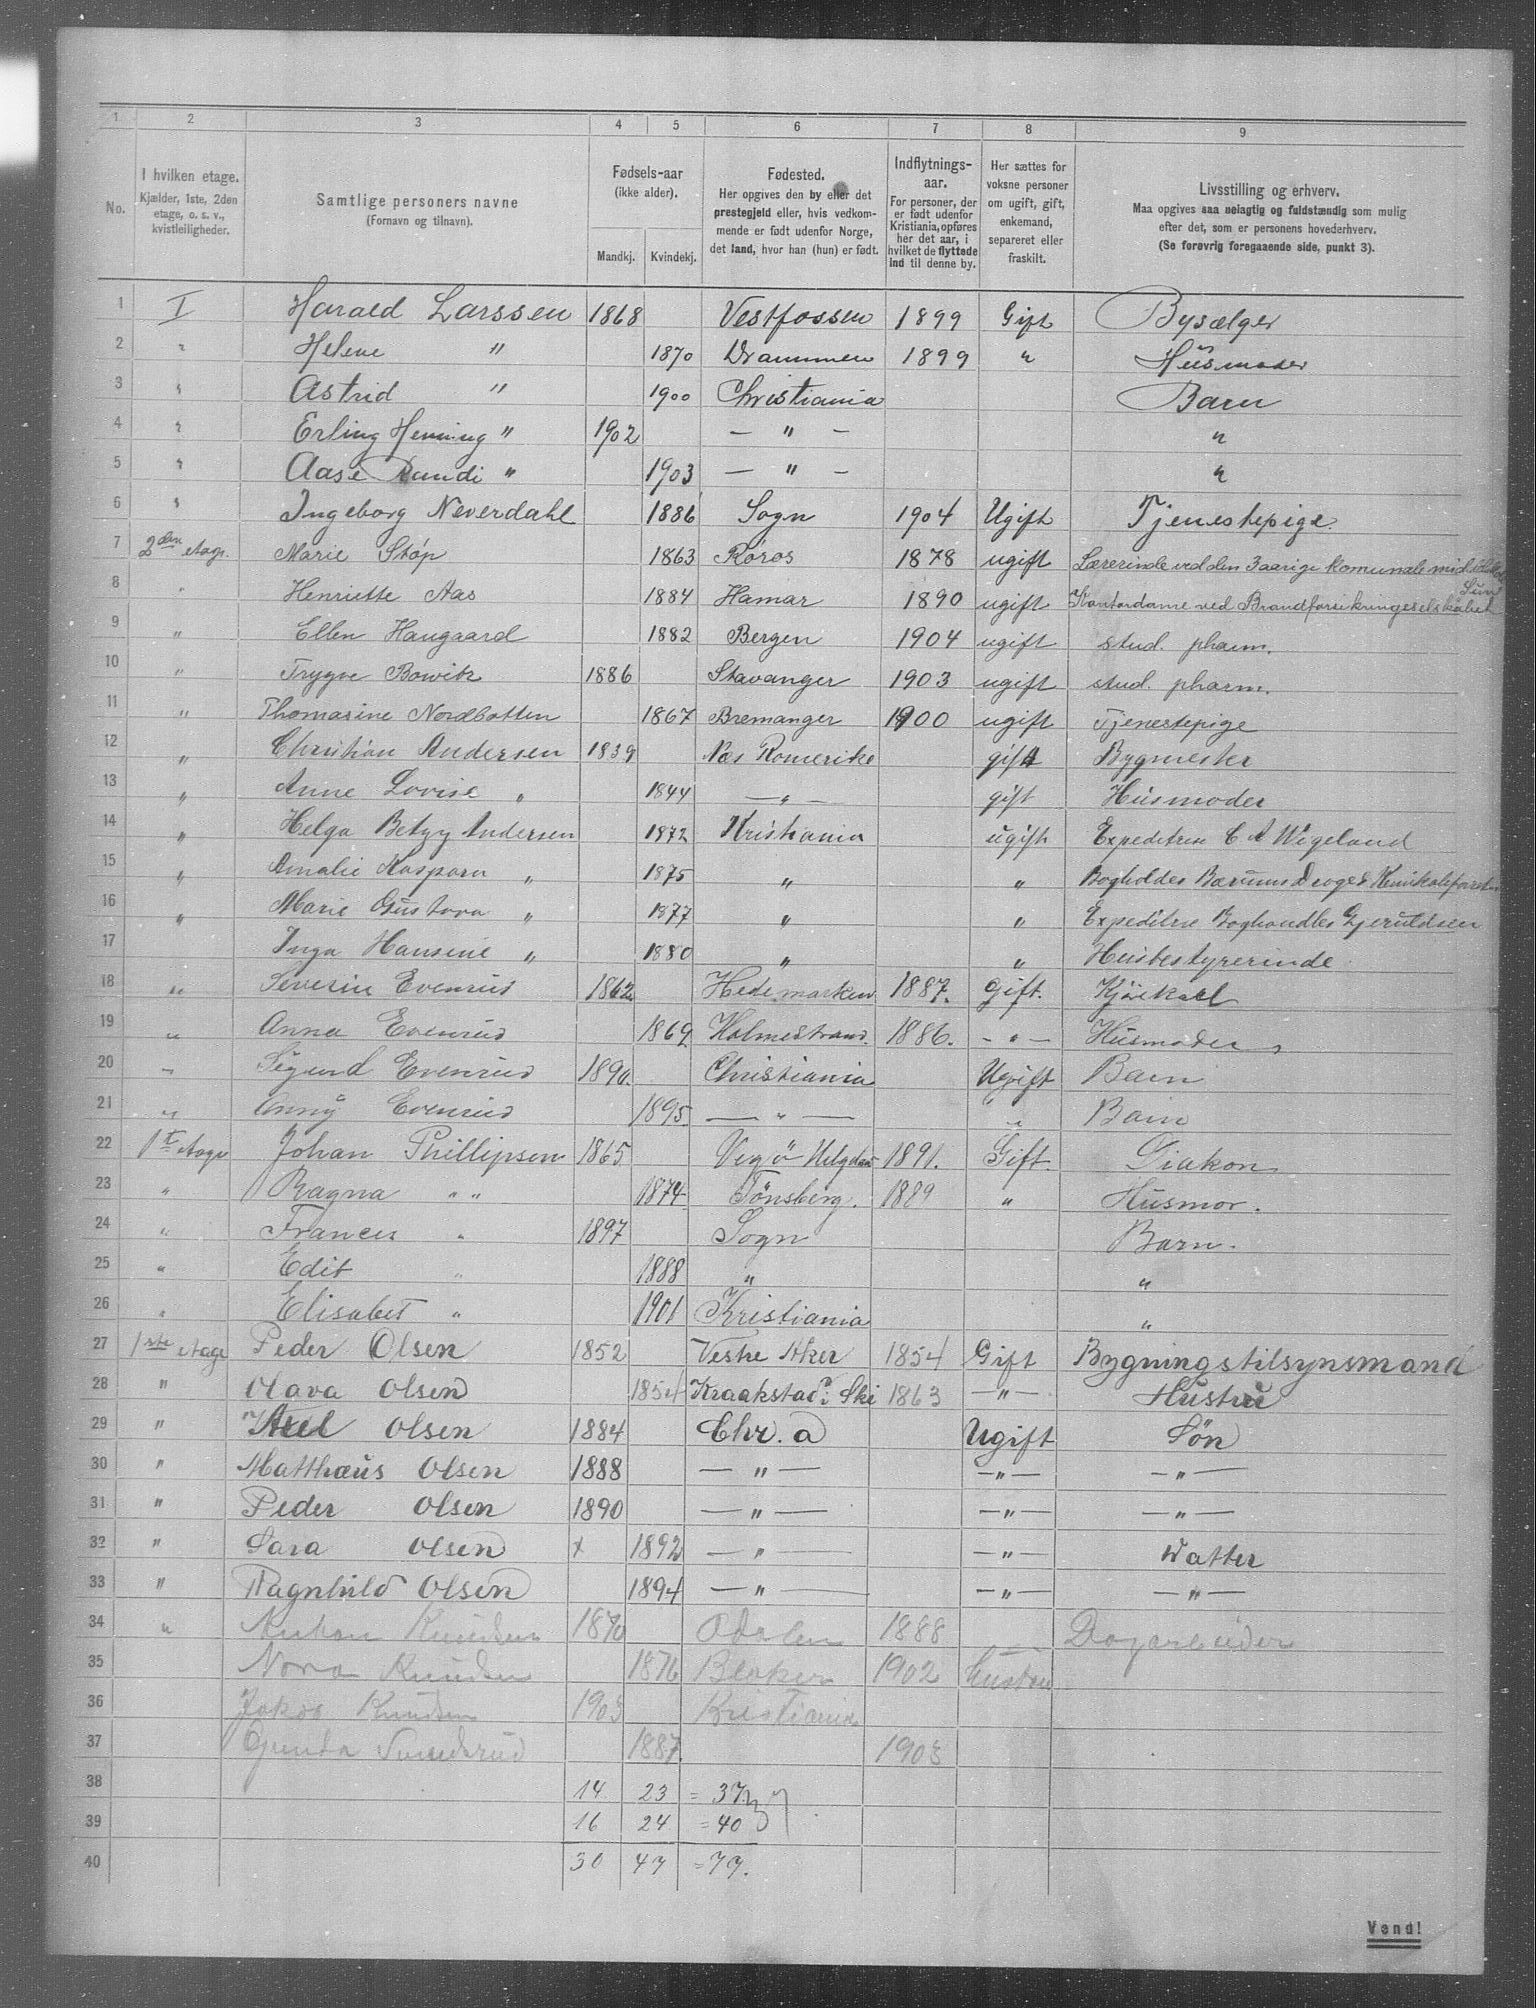 1 2 3 4 5 6 7 8 9
No. I hvilken etage. Kjælder, 1ste, 2den etage, o. s. v., kvistleiligheder. Samtlige personers navne (Fornavn og tilnavn). Fødsels-aar (ikke alder). Mandkj. Kvindekj. Fødested. Her opgives den by eller det prestegjeld eller, hvis vedkommende er født udenfor Norge, det land, hvor han (hun) er født. Indflytnings-aar. For personer, der er født udenfor Kristiania, opføres her det aar, i hvilket de flyttede ind til denne by. Her sættes for voksne personer om ugift, gift, enkemand, separeret eller fraskilt. Livsstilling og erhverv. Maa opgives saa nøiagtig og fuldstændig som mulig efter det, som er personens hovederhverv. (Se forøvrig foregaaende side, punkt 3).
1 I Harald Larssen 1868 Vestfossen 1899 Gift Bysælger
2 " Helene " 1870 Drammen 1899 " Husmoder
3 " Astrid " 1900 Christiania Barn
4 " Erling Henning " 1902 — " — "
5 " Aase Randi " 1903 — " — "
6 " Ingeborg Neverdahl 1886 Sogn 1904 Ugift Tjenestepige.
7 2den etage Marie Støp 1863 Røros 1878 ugift Lærerinde ved den 3 aarige komunale
8 " Henriette Aas 1884 Hamar 1890 ugift Kontordame ved Brandforsikringsselskabet
9 " Ellen Haugaard 1882 Bergen 1904 ugift stud. pharm.
10 " Trygve Bowitz 1886 Stavanger 1903 ugift stud. pharm.
11 " Thomasine Nordbotten 1867 Bremanger 1900 ugift Tjenestepige
12 " Christian Andersen 1839 Næs Romerike gift Bygmester
13 " Anne Lovise " 1844 — " — gift Husmoder
14 " Helga Betzy Andersen 1872 Kristiania ugift Expeditrise C A Wigeland
15 " Amalie Kaspara " 1875 " " Bogholder Bærums
16 " Marie Gustava " 1877 " " Expeditrise Boghandler Gjeruldsen
17 Inga Hansine " 1880 " " Husbestyrerinde
18 " Severin Evenrud 1862 Hedemarken 1887. Gift. Kjørekarl
19 " Anna Evenrud 1869 Holmestrand. 1886. - " - Husmoder
20 " Sigurd Evenrud 1890. Christiania Ugift Barn
21 " Anny Evenrud 1895. — " — " Barn
22 1st etage Johan Phillipsen 1865 Vegø Helgeland 1891. Gift Diakon
23 " Ragna " " 1874 Tønsberg. 1889 " Husmor.
24 " Frances " 1897 Sogn Barn.
25 " Edit " 1888 " "
26 " Elisabet " 1901 Kristiania "
27 1ste etage Peder Olsen 1852 Vestre Aker 1854 Gift Bygningstilsynsmand
28 " Olava Olsen 1854 Kraakstad i Ski 1863 — " — Hustru
29 " Axel Olsen 1884 Chr. a Ugift Søn
30 " Matthæus Olsen 1888 — " — — " — — " —
31 " Peder Olsen 1890 — " — — " — — " —
32 " Sara Olsen x 1892 — " — — " — Datter
33 " Ragnhild Olsen 1894 — " — — " — — " —
34 " Anton Knudsen 1870 Odalen 1888 Dagarbeider
35 Nora Knudsen 1876 Blaker 1902 Hustru
36 Jakob Knudsen 1905 Kristiania
37 Gunda 1887. 1905
38 14 23 = 37
39 16 24 = 40
40 30 47 = 77.
Vend!